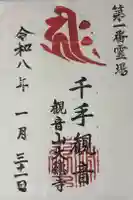 第一番霊場
千手観音
観音山
令和八年一月三十一日